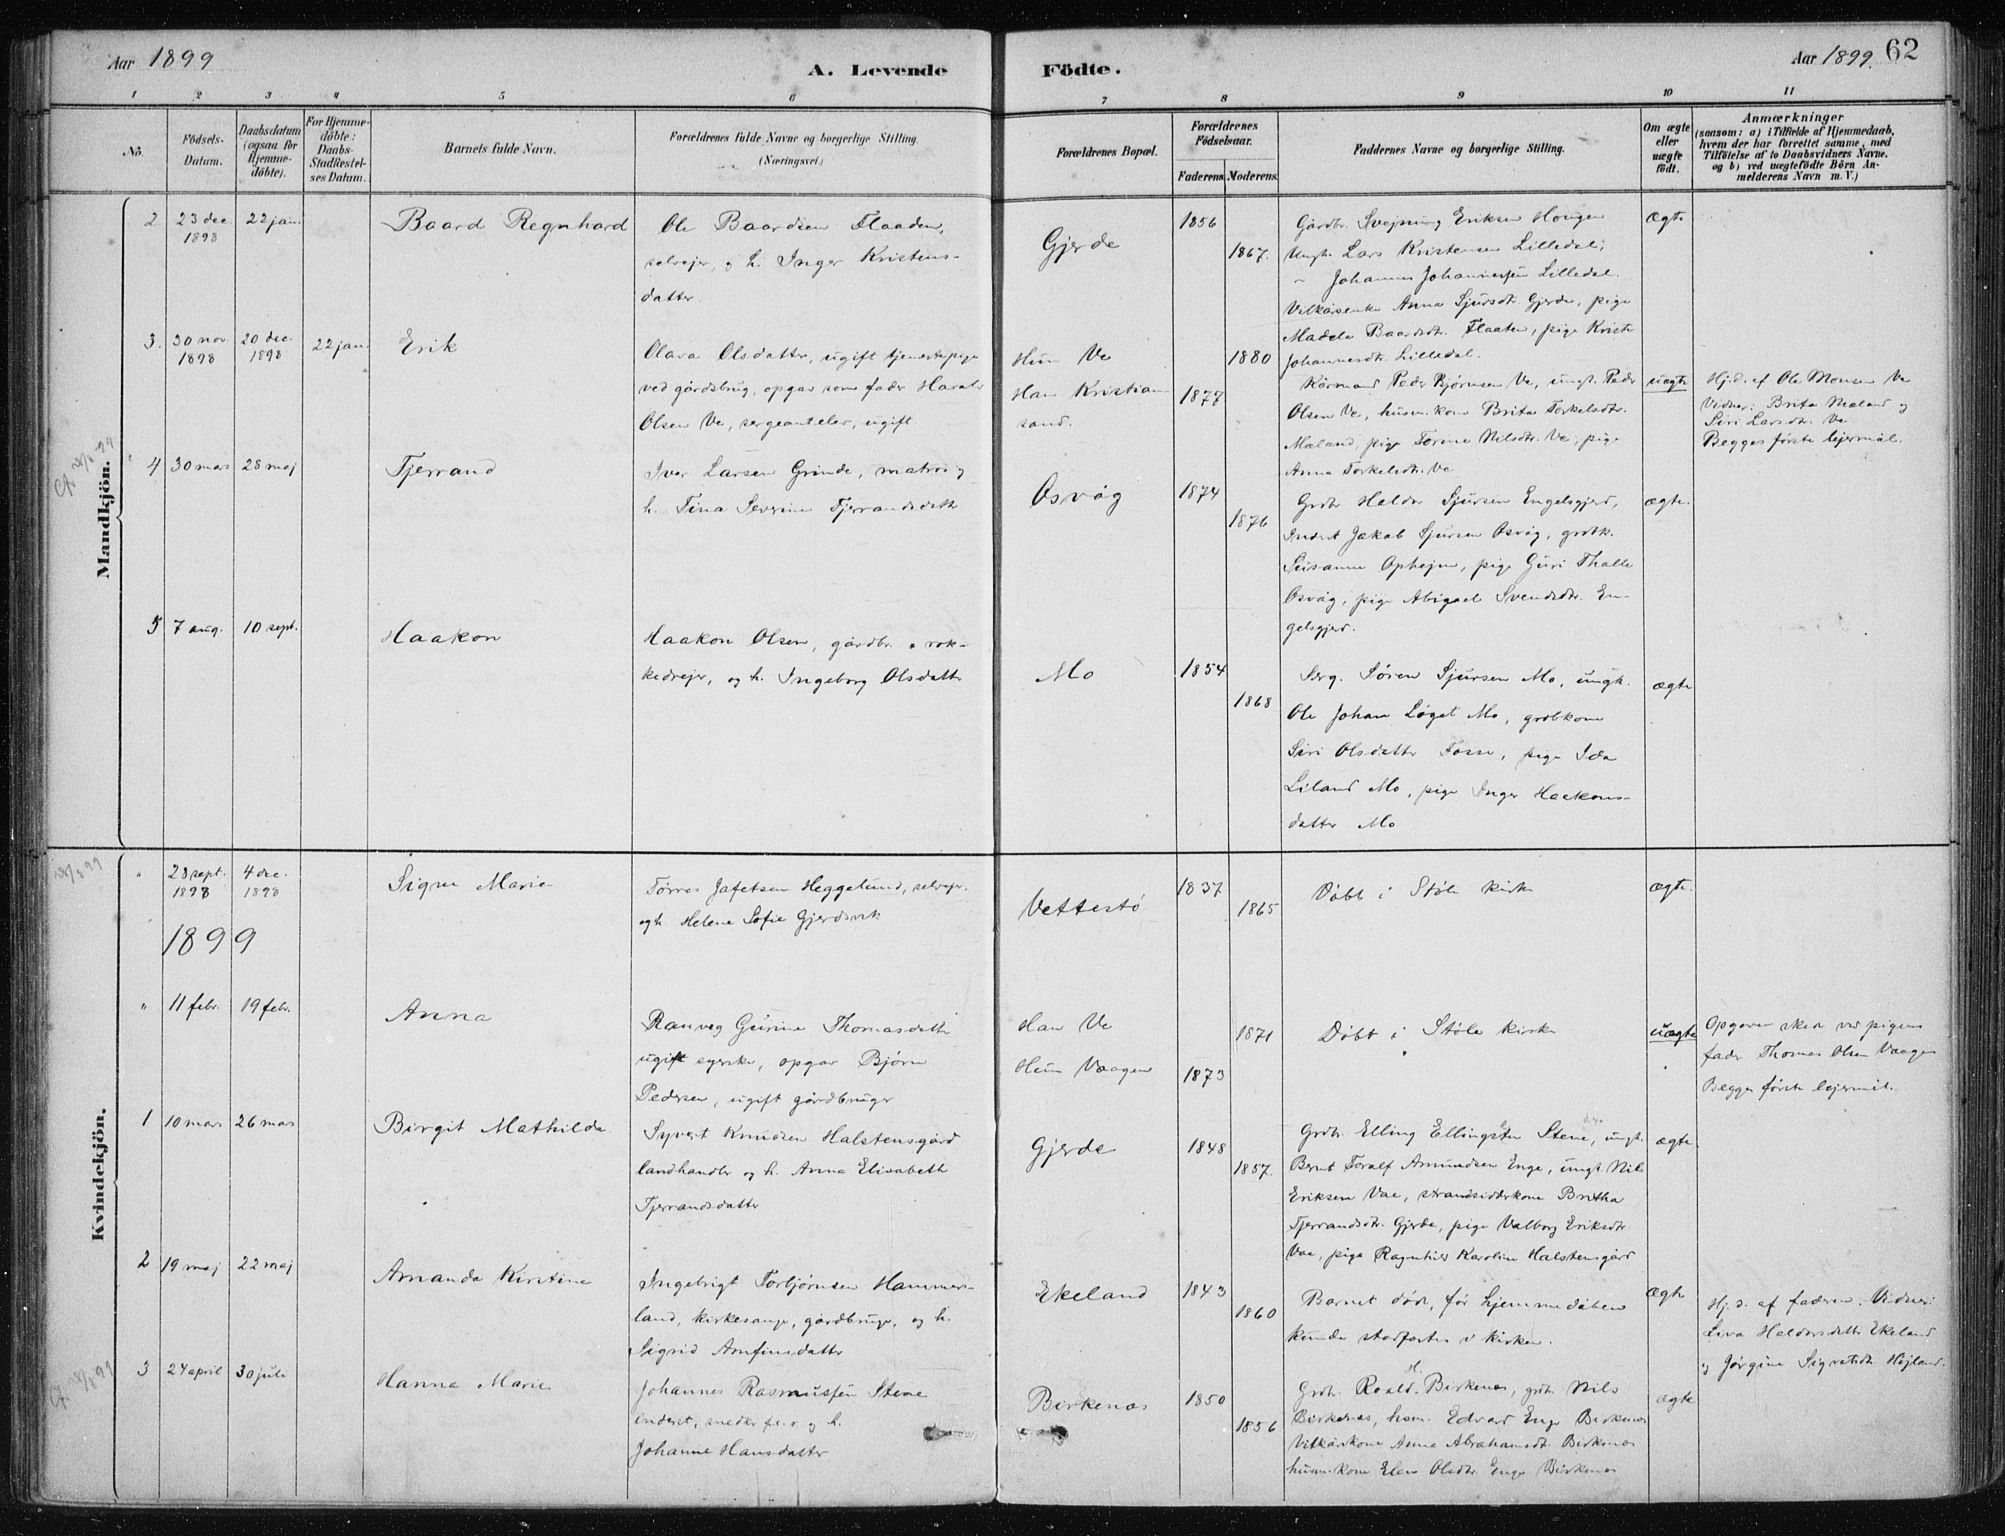 Aar 1899
A. Levende
Födte.
Aar 1899.
62
1 2 3 4 5 6 7 8 9 10 11
No.
Födsels-
Datum.
Daabsdatum
(ogsaa for
Hjemme-
döbte).
For Hjemme-
döbte:
Daabs-
Stadfæstel-
ses Datum.
Barnets fulde Navn.
Forældrenes fulde Navne og borgerlige Stilling.
(Næringsvei.)
Forældrenes Bopæl.
Forældrenes
Födselsaar.
Faderens Moderens.
Faddernes Navne og borgerlige Stilling.
Om ægte
eller
uægte
födt.
Anmærkninger
(saasom: a) i Tilfælde af Hjemmedaab,
hvem der har forrettet samme, med
Tilföielse af to Daabsvidners Navne.
og b) ved uægtefödte Börn An-
melderens Navn m. V.)
Mandkjön.
2
23 dec
1898
22 jan.
Baard Regnhard
Ole Baardsen Flaaden,
selvejer, og h. Inger Kristens-
datter.
Gjerde
1856
1867.
Gårdbr. Svejnung Eriksen Hougen
Ungk. Lars Kristensen Lilledal;
" Johannes Johannessen Lilledal.
Vilkårsenke Anna Sjursdtr. Gjerde, pige
Madele Baardsdtr. Flaaten, pige Kristi
Johannesdtr. Lilledal.
ægte
3.
30 nov
1898
20 dec.
1898
22 jan.
Erik
Olava Olsdatter, ugift tjenestepige
ved gårdsbrug, opgav som fader Harald
Olsen Ve, sergeantelev, ugift
Hun Ve
Han Kristian
sand.
1880
1877
Kårmand Peder Bjørnsen Ve, ungk. Peder
Olsen Ve, husm.kone Brita Torkelsdtr.
Maland, pige Torine Nilsdtr. Ve, pige
Anna Torkelsdtr. Ve
uægte
Hj.d. af Ole Monsen Ve
Vidner: Brita Maland og
Siri Larsdtr. Ve.
Begges første lejermål.
4
30 mars
28 maj
Tjerrand
Iver Larsen Grinde, matros og
h. Tina Severine Tjerrandsdatter
Osvåg
1874
1876
Grdbr. Haldor Sjursen Engelsgjerd,
Inderst Jakob Sjursen Osvåg, grdbk.
Susanne Ophejm, pige Guri Thalle
Osvåg, pige Abigael Svendsdtr. En-
gelsgjerd.
ægte.
5
7 aug.
10 sept.
Haakon
Haakon Olsen, gårdbr. & rok-
kedrejer, og h. Ingeborg Olsdatter
Mo
1854
1868
Serg. Søren Sjursen Mo, ungk.
Ole Johan Løget Mo, grdbkone
Siri Olsdatter Fosse, pige Ida
Liland Mo, pige Inger Haakons-
datter Mo
ægte
Kvindekjön.
"
28 sept.
1898
4 dec.
1898
Signe Marie
Tørres Jafetsen Heggelund, selvejer.
og h. Helene Sofie Gjerdsvik
Vettestø
1837
1865
Døbt i Støle kirke
ægte.
1899
"
11 febr.
19 febr.
Anna
Ranveg Gurine Thomasdatter
ugift syerske, opgav Bjørn
Pedersen, ugift gårdbruger
Han Ve
Hun Vaagen
1871
1873
Døbt i Støle kirke
uægte
Opgaven skea ved pigens
fader Thomas Olsen Vaagen
Begges første lejermål.
1
10 mars
26 mars
Birgit Mathilde
Syvert Knudsen Halstensgård
landhandler og h. Anna Elisabeth
Tjerrandsdatter
Gjerde
1848
1857.
Grdbr. Elling Ellingsen Stene, ungk.
Bernt Toralf Amundsen Enge, ungk. Nils
Eriksen Vae, strandsidderkone Britha
Tjerrandsdtr. Gjerde, pige Valborg Eriksdtr.
Vae, pige Ragnhild Karoline Halstensgård
ægte
2
19 maj
22 maj
Amanda Kirstine
Ingebrigt Torbjørnsen Hammer-
land, kirkesanger, gårdbruger, og h.
Sigrid Arnfinsdatter
Ekeland
1843
1860
Barnet døde, før hjemmedåben
kunde stadfæstes i kirken.
ægte
Hj.d. af faderen. Vidner:
Liva Haldorsdatter Ekeland
og Jørgine Sigvatsdtr. Højland.
3
24 april
30 juli
Hanna Marie
Johannes Rasmussen Stene
inderst, smeder, og h.
Johanne Hansdatter
Birkenæs
1850
1856
Grdbr. Roald H. Birkenes, grdbr. Nils
Birkenes, husm. Edvard Enge Birkenes
Vilkårskone Anna Abrahamsdtr. Birkenes
husm.kone Elen Olsdtr. Enge Birkenes
ægte